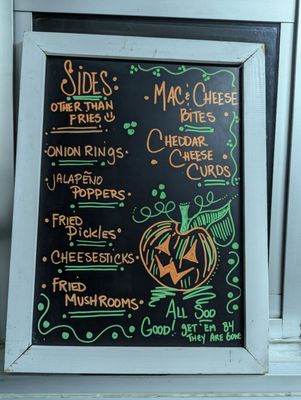 SIDES
OTHER THAN
FRIES
ONION RINGS
JALAPEÑO
POPPERS
FRIED
PICKLES
CHEESESTICKS
FRIED
MUSHROOMS
MAC & CHEESE
BITES
CHEDDAR
CHEESE
CURDS
ALL SOO
GOOD! GET 'EM B4
THEY ARE GONE